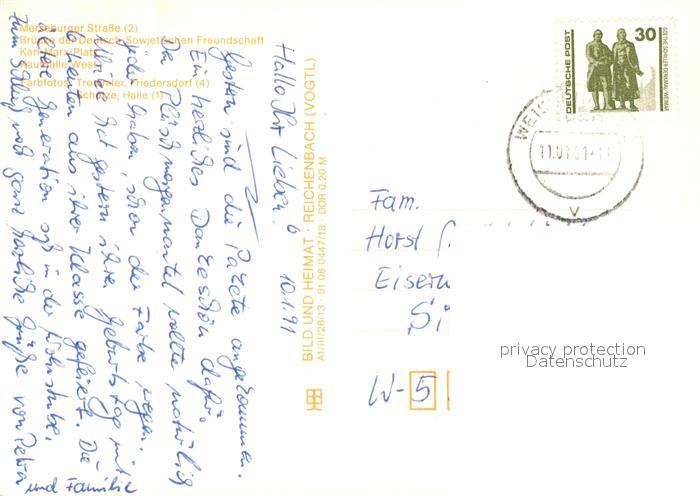 Merseburger Straße (2)
Brücke der Deutsch-Sowjetischen Freundschaft
Karl-Marx-Platz
Kaufhalle West
Farbfotos: Friedersdorf (4)
Halle (1)
Hallo Ihr Lieben! 10.1.91
Gestern sind die Pakete angekommen.
Ein herzliches Dankeschön dafür.
Der Plüschmorgenmantel wollte natürlich
jede haben, schon der Farbe wegen.
hat gestern ihren Geburtstag mit
6 Leuten aus ihrer Klasse gefeiert. Die
ältere Generation saß in der Wohnstube.
Zum Schluß noch ganz herzliche Grüße von Petra
und Familie
BILD UND HEIMAT · REICHENBACH (VOGTL)
A1/III/26/13 · 01 08 0447/18 · DDR 0,20 M
30
DEUTSCHE POST
GOETHE-SCHILLER-DENKMAL · WEIMAR
11.01.91-11
V
Fam.
Horst
Eisern
Si
W-5
privacy protection
Datenschutz